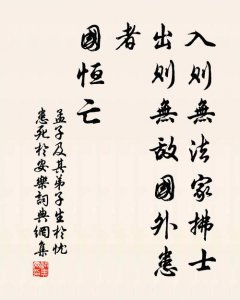 入則無法家拂士
出則無敌國外患
者
國恒亡
孟子及其弟子生於忧
患死於安樂詞典網集